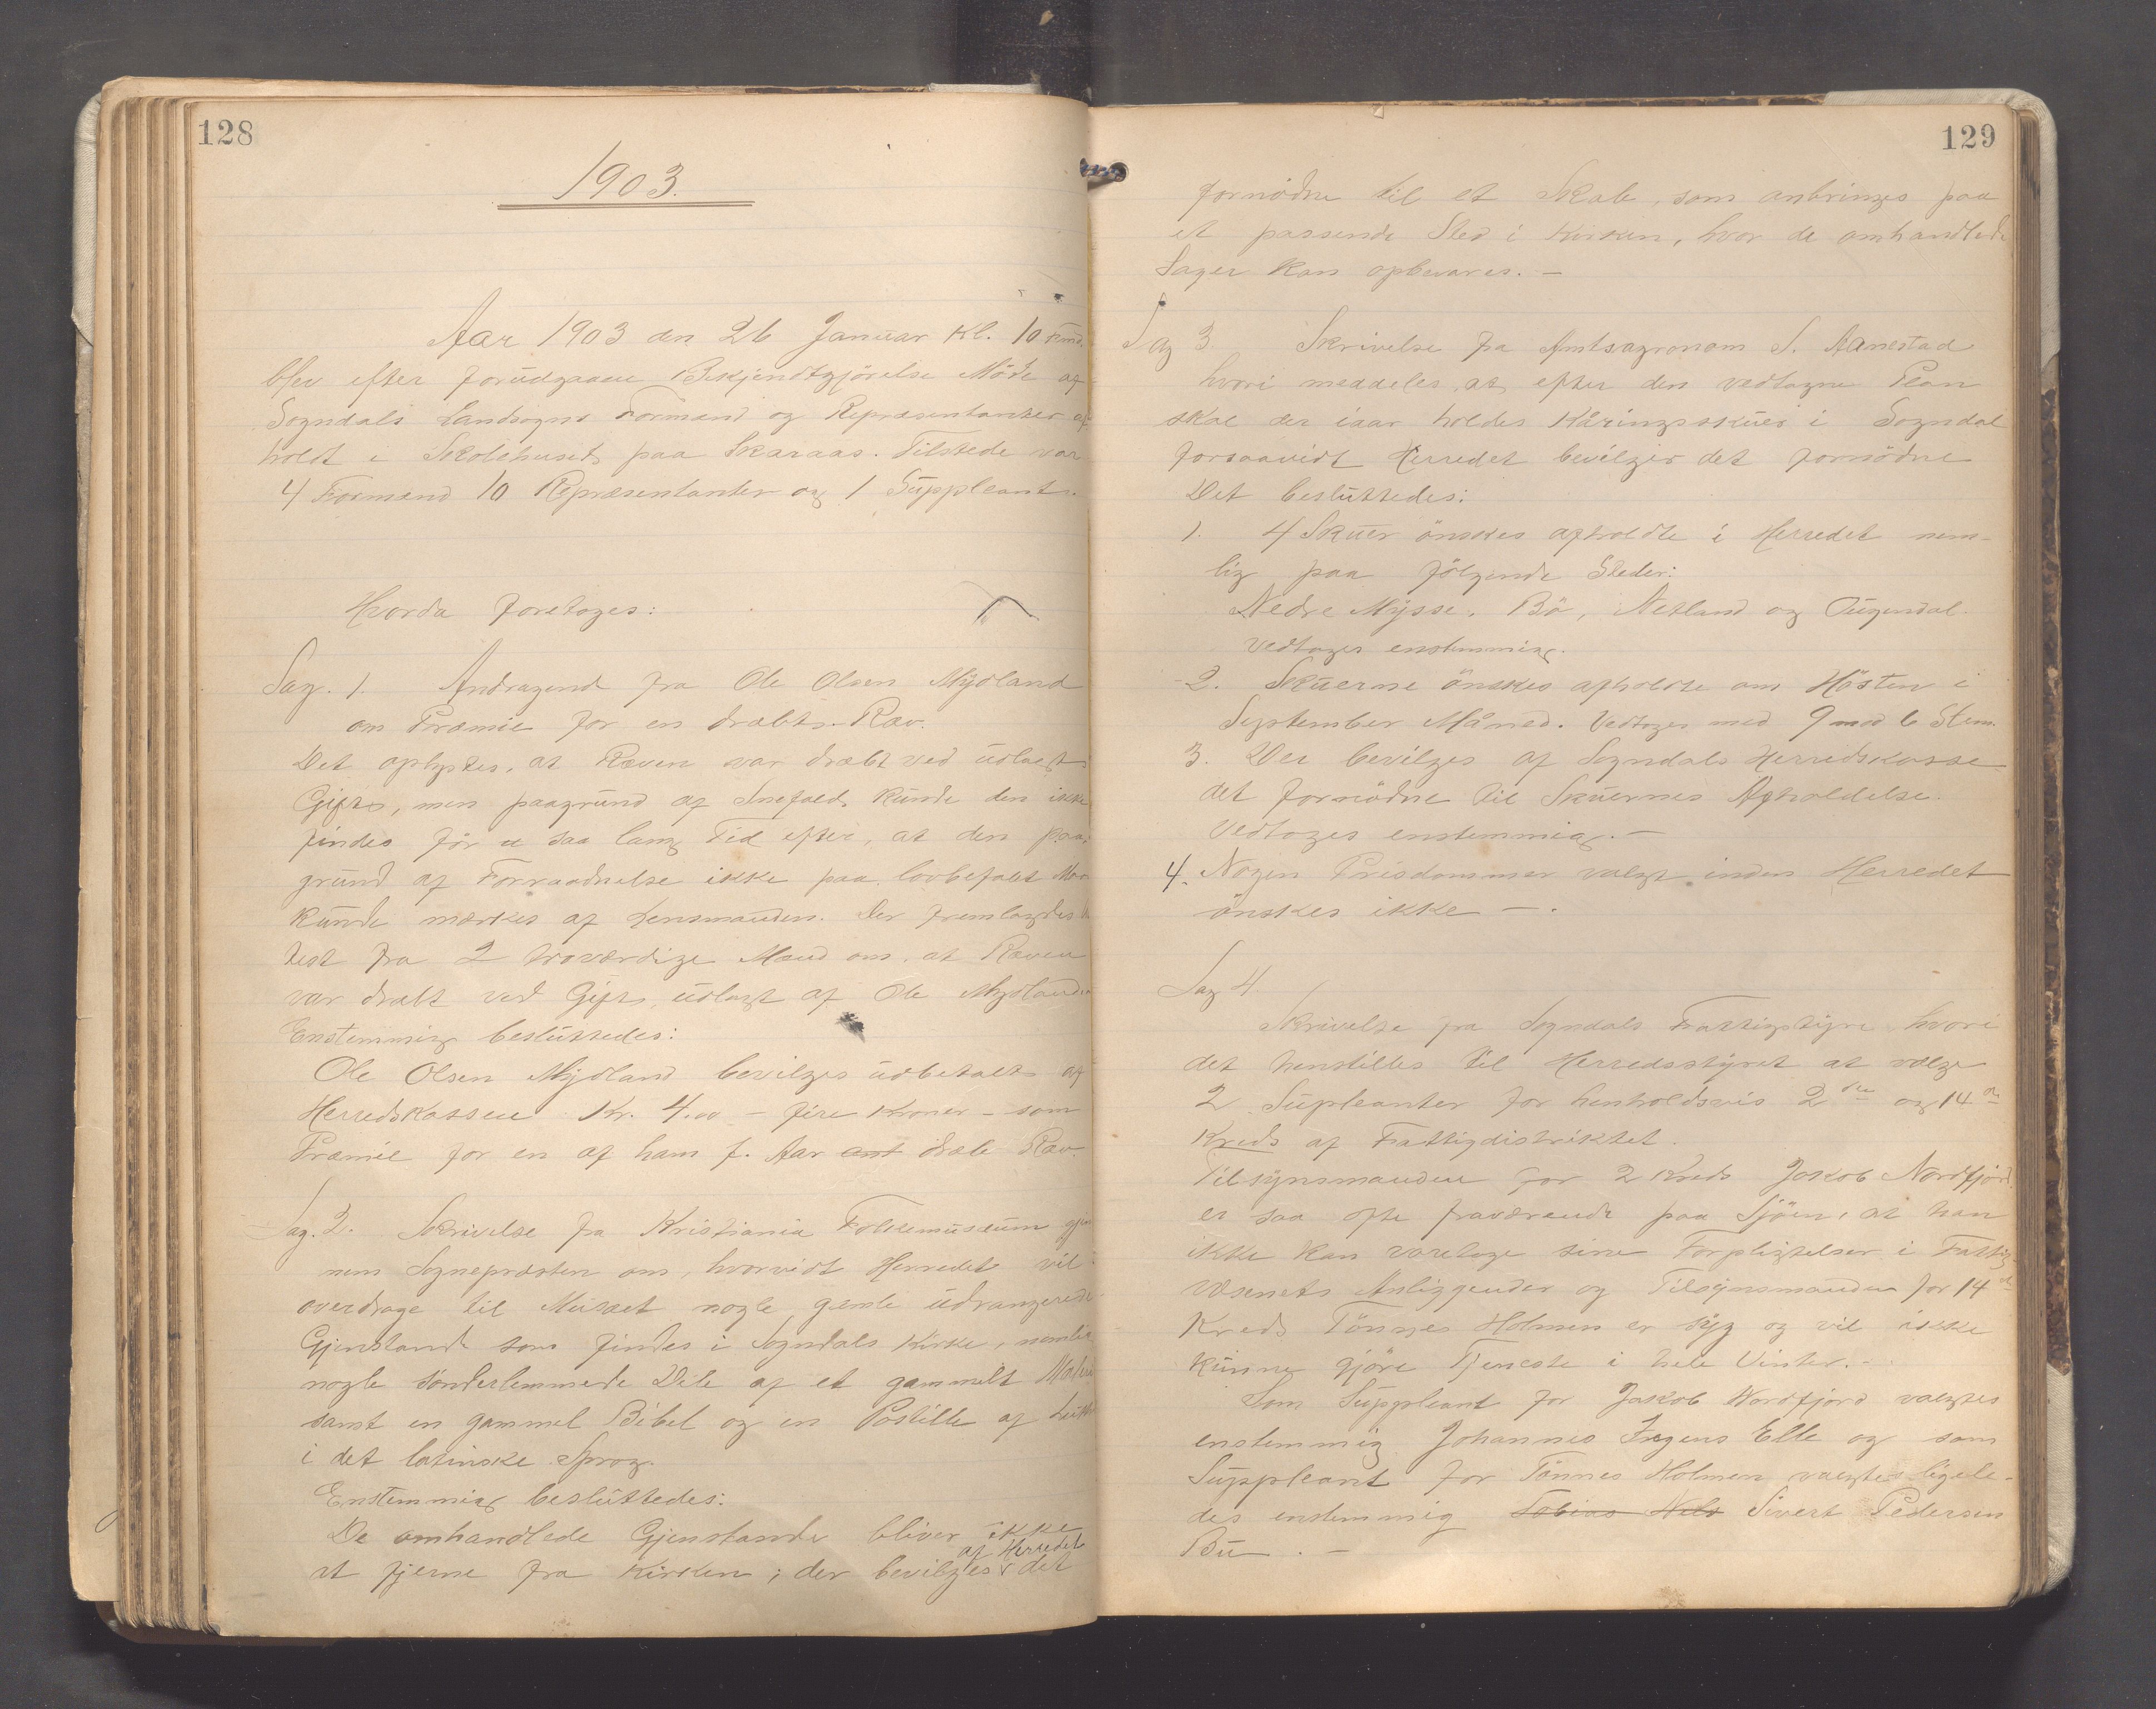 128
1903.
Aar 1903 den 26 Januar Kl. 10 Fmd.
blev efter forudgaaen Bekjendtgjörelse Möde af
Sogndals Landsogns Formænd og Repræsentanter af-
holdt i Skolehuset paa Skaraas. Tilstede var
4 Formænd 10 Repræsentanter og 1 Suppleant.
Hvorda foretoges:
Sag. 1. Andragende fra Ole Olsen Mydland
om Præmie for en dræbt Ræv.
Det oplystes, at Ræven var dræbt ved udlagt
Gift, men paagrund af Snefald kunde den ikke
findes för saa lang Tid efter, at den paa
grund af Forraadnelse ikke paa lovbefalt
kunde mærkes af Lensmanden. Der fremlagdes
test fra 2 troværdige Mænd om, at Ræven
var dræbt ved Gift, udlagt af Ole Mydland
Enstemmig besluttedes:
Ole Olsen Mydland bevilges udbetalt af
Herredskassen Kr. 4.00 – fire Kroner – som
Præmie for en af ham f. Aar dræb Ræv.
Sag. 2. Skrivelse fra Kristiania Folkemuseum gjen
nem Sognepræsten om, hvorvidt Herredet vil
overdrage til Musæet nogle gamle udrangerede
Gjenstande som findes i Sogndals Kirke, nemlig
nogle sönderlemmede Dele af et gammelt
samt en gammel Bibel og en Postille af
i det latinske Sprog.
Enstemmig besluttedes:
De omhandlede Gjenstande bliver ikke
af Herredet
at fjerne fra Kirken; der bevilges det
129
fornödne til et Skab, som anbringes paa
et passende Sted i Kirken, hvor de omhandlede
Sager kan opbevares. –
Sag 3 Skrivelse fra Amtsagronom S. Aanestad
hvori meddeles, at efter den vedtagne Plan
skal der iaar holdes Kåringsskuer i Sogndal
forsaavidt Herredet bevilger det fornödne
Det besluttedes:
1. 4 Skuer önskes afholdte i Herredet nem-
lig paa fölgende Steder:
Nedre Mysse, Bö, Netland og Ougendal.
Vedtoges enstemmig.
2. Skuerne önskes afholdte om Hösten i
September Måned. Vedtoges med 9 mod 6 Stem.
3. Der bevilges af Sogndals Herredskasse
det fornödne til Skuernes Afholdelse.
Vedtoges enstemmig. –
4. Nogen Prisdommer valgt inden Herredet
önskes ikke – .
Sag 4
Skrivelse fra Sogndals Fattigstyre hvori
det henstilles til Herredsstyret at vælge
2 Supleanter for henholdsvis 2den og 14de
Kreds af Fattigdistriktet.
Tilsynsmanden for 2 Kreds Jakob Nordfjord
er saa ofte fraværende paa Sjöen, at han
ikke kan varetage sine Forpligtelser i Fattig
væsenets Anliggender og Tilsynsmanden for 14de
Kreds Tönnes Holmen er syg og vil ikke
kunne gjöre Tjeneste i hele Vinter. –
Som Suppleant for Jakob Nordfjord valgtes
enstemmig Johannes Elle og som
Suppleant for Tönnes Holmen valgtes ligele-
des enstemmig Tobias Nils Sivert Pedersen
Bu . –